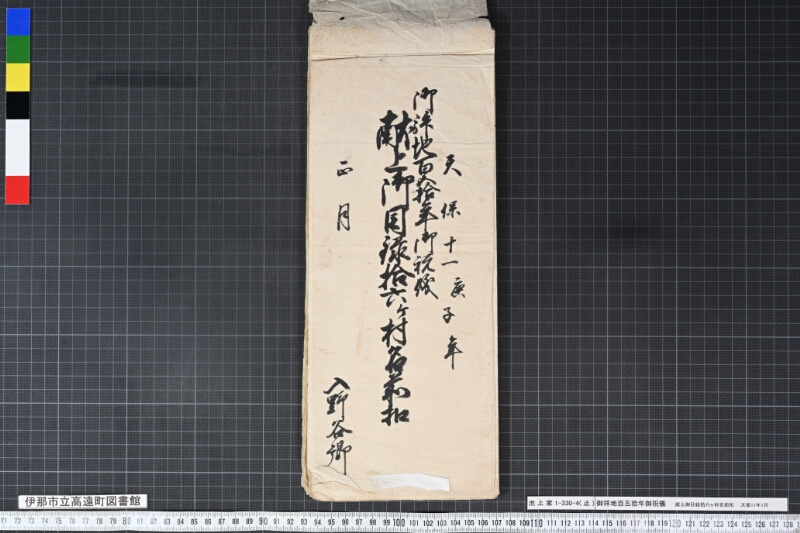 天保十一庚子年
御拝地百五拾年御祝儀
献上御目録拾六ヶ村名前扣
正月
入野谷郷
伊那市立高遠町図書館
池上家1-330-4(止)御拝地百五拾年御祝儀 献上御目録拾六ヶ村名前扣 天保11年1月